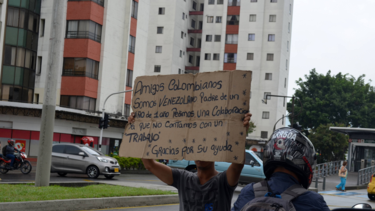 Amigos Colombianos
Somos VENEZOLANOS Padre de un
Niño de 1 año Pedimos una Colaboración
Ya que no Contamos con un
TRABAJO
Gracias por su ayuda